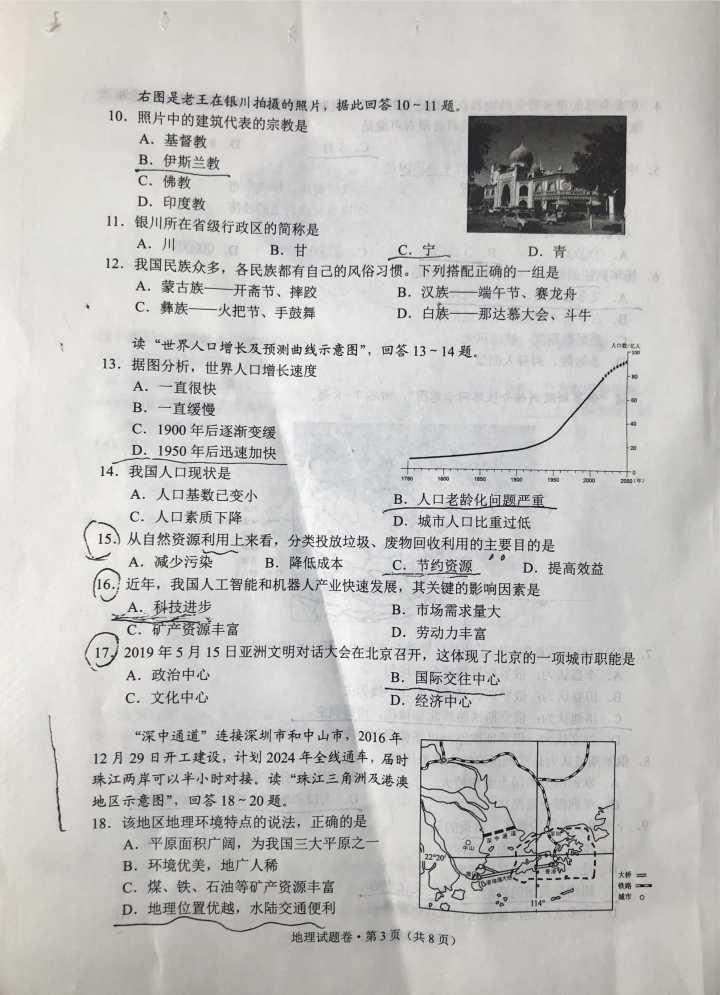 右图是老王在银川拍摄的照片，据此回答10～11题。
10．照片中的建筑代表的宗教是
A．基督教
B．伊斯兰教
C．佛教
D．印度教
11．银川所在省级行政区的简称是
A．川 B．甘 C．宁 D．青
12．我国民族众多，各民族都有自己的风俗习惯。下列搭配正确的一组是
A．蒙古族——开斋节、摔跤 B．汉族——端午节、赛龙舟
C．彝族——火把节、手鼓舞 D．白族——那达慕大会、斗牛
读“世界人口增长及预测曲线示意图”，回答13～14题。
13．据图分析，世界人口增长速度
A．一直很快
B．一直缓慢
C．1900年后逐渐变缓
D．1950年后迅速加快
人口数/亿人
100
80
60
40
20
0
1750 1800 1850 1900 1950 2000 2050(年)
14．我国人口现状是
A．人口基数已变小 B．人口老龄化问题严重
C．人口素质下降 D．城市人口比重过低
15．从自然资源利用上来看，分类投放垃圾、废物回收利用的主要目的是
A．减少污染 B．降低成本 C．节约资源 D．提高效益
16．近年，我国人工智能和机器人产业快速发展，其关键的影响因素是
A．科技进步 B．市场需求量大
C．矿产资源丰富 D．劳动力丰富
17．2019年5月15日亚洲文明对话大会在北京召开，这体现了北京的一项城市职能是
A．政治中心 B．国际交往中心
C．文化中心 D．经济中心
“深中通道”连接深圳市和中山市，2016年
12月29日开工建设，计划2024年全线通车，届时
珠江两岸可以半小时对接。读“珠江三角洲及港澳
地区示意图”，回答18～20题。
18．该地区地理环境特点的说法，正确的是
A．平原面积广阔，为我国三大平原之一
B．环境优美，地广人稀
C．煤、铁、石油等矿产资源丰富
D．地理位置优越，水陆交通便利
深中通道
中山
22°20′
114°
大桥
铁路
城市
地理试题卷·第3页（共8页）